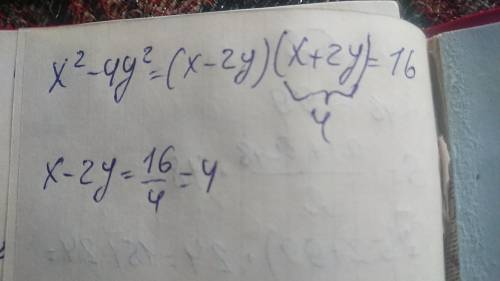 x² - 4y² = (x - 2y)(x + 2y) = 16
4
x - 2y = 16/4 = 4